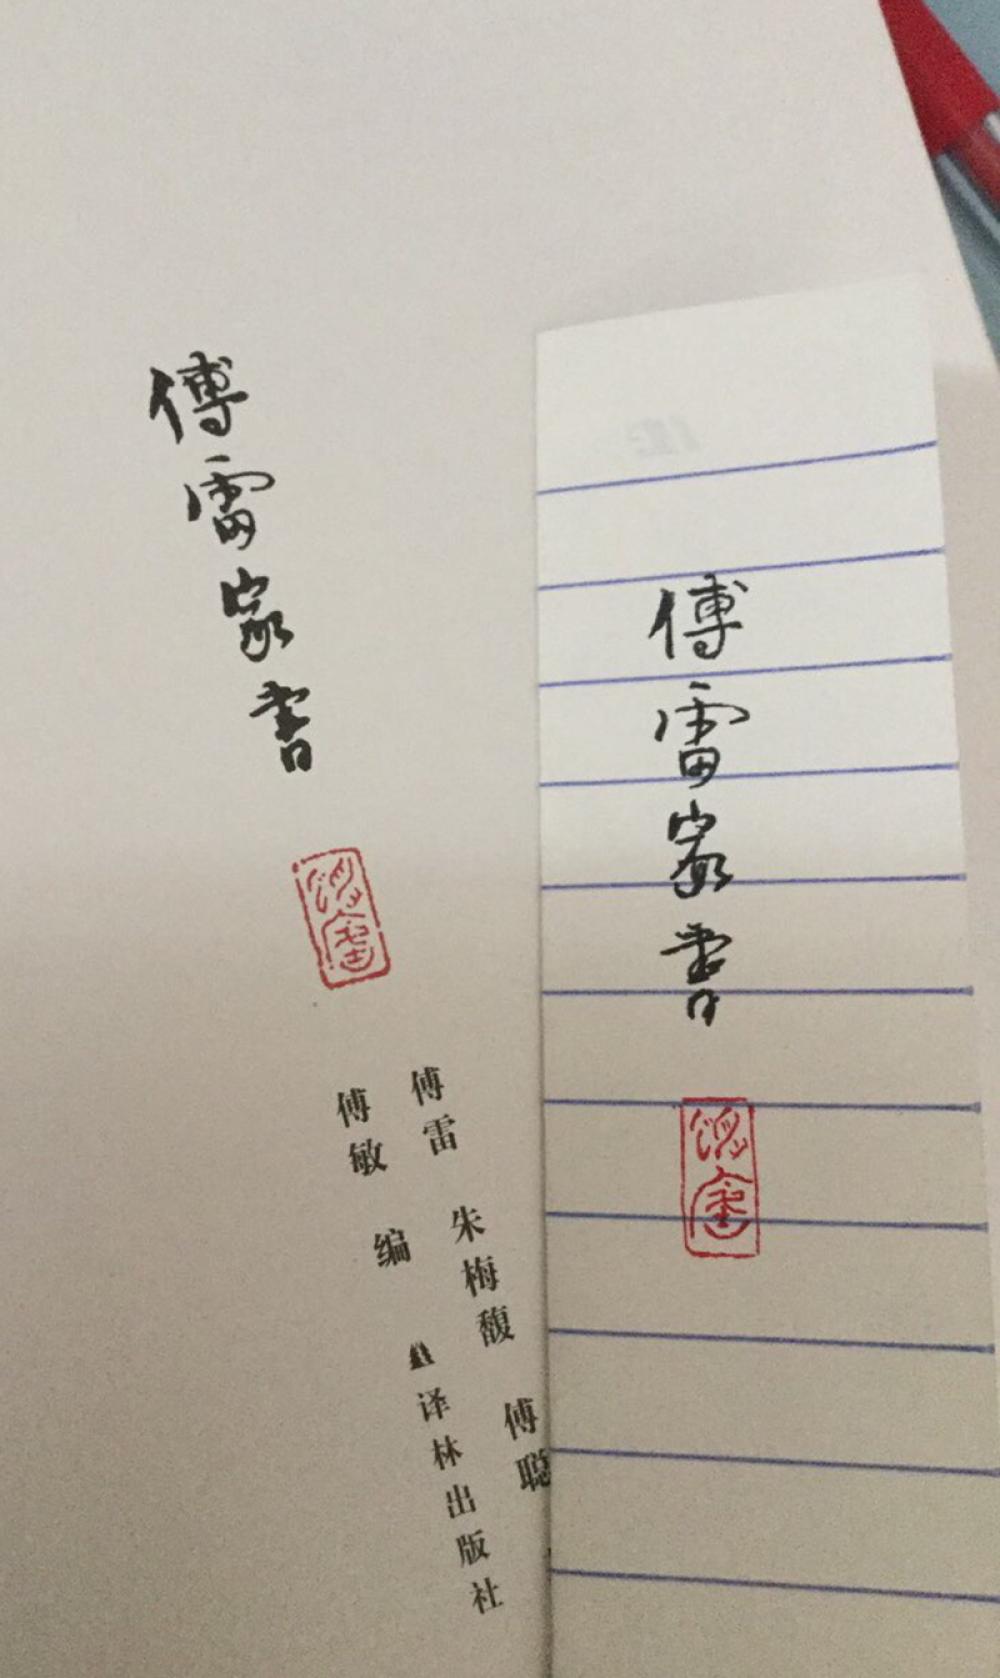 傅雷家書
傅雷 朱梅馥 傅聪
傅敏 编
译林出版社
傅雷家書